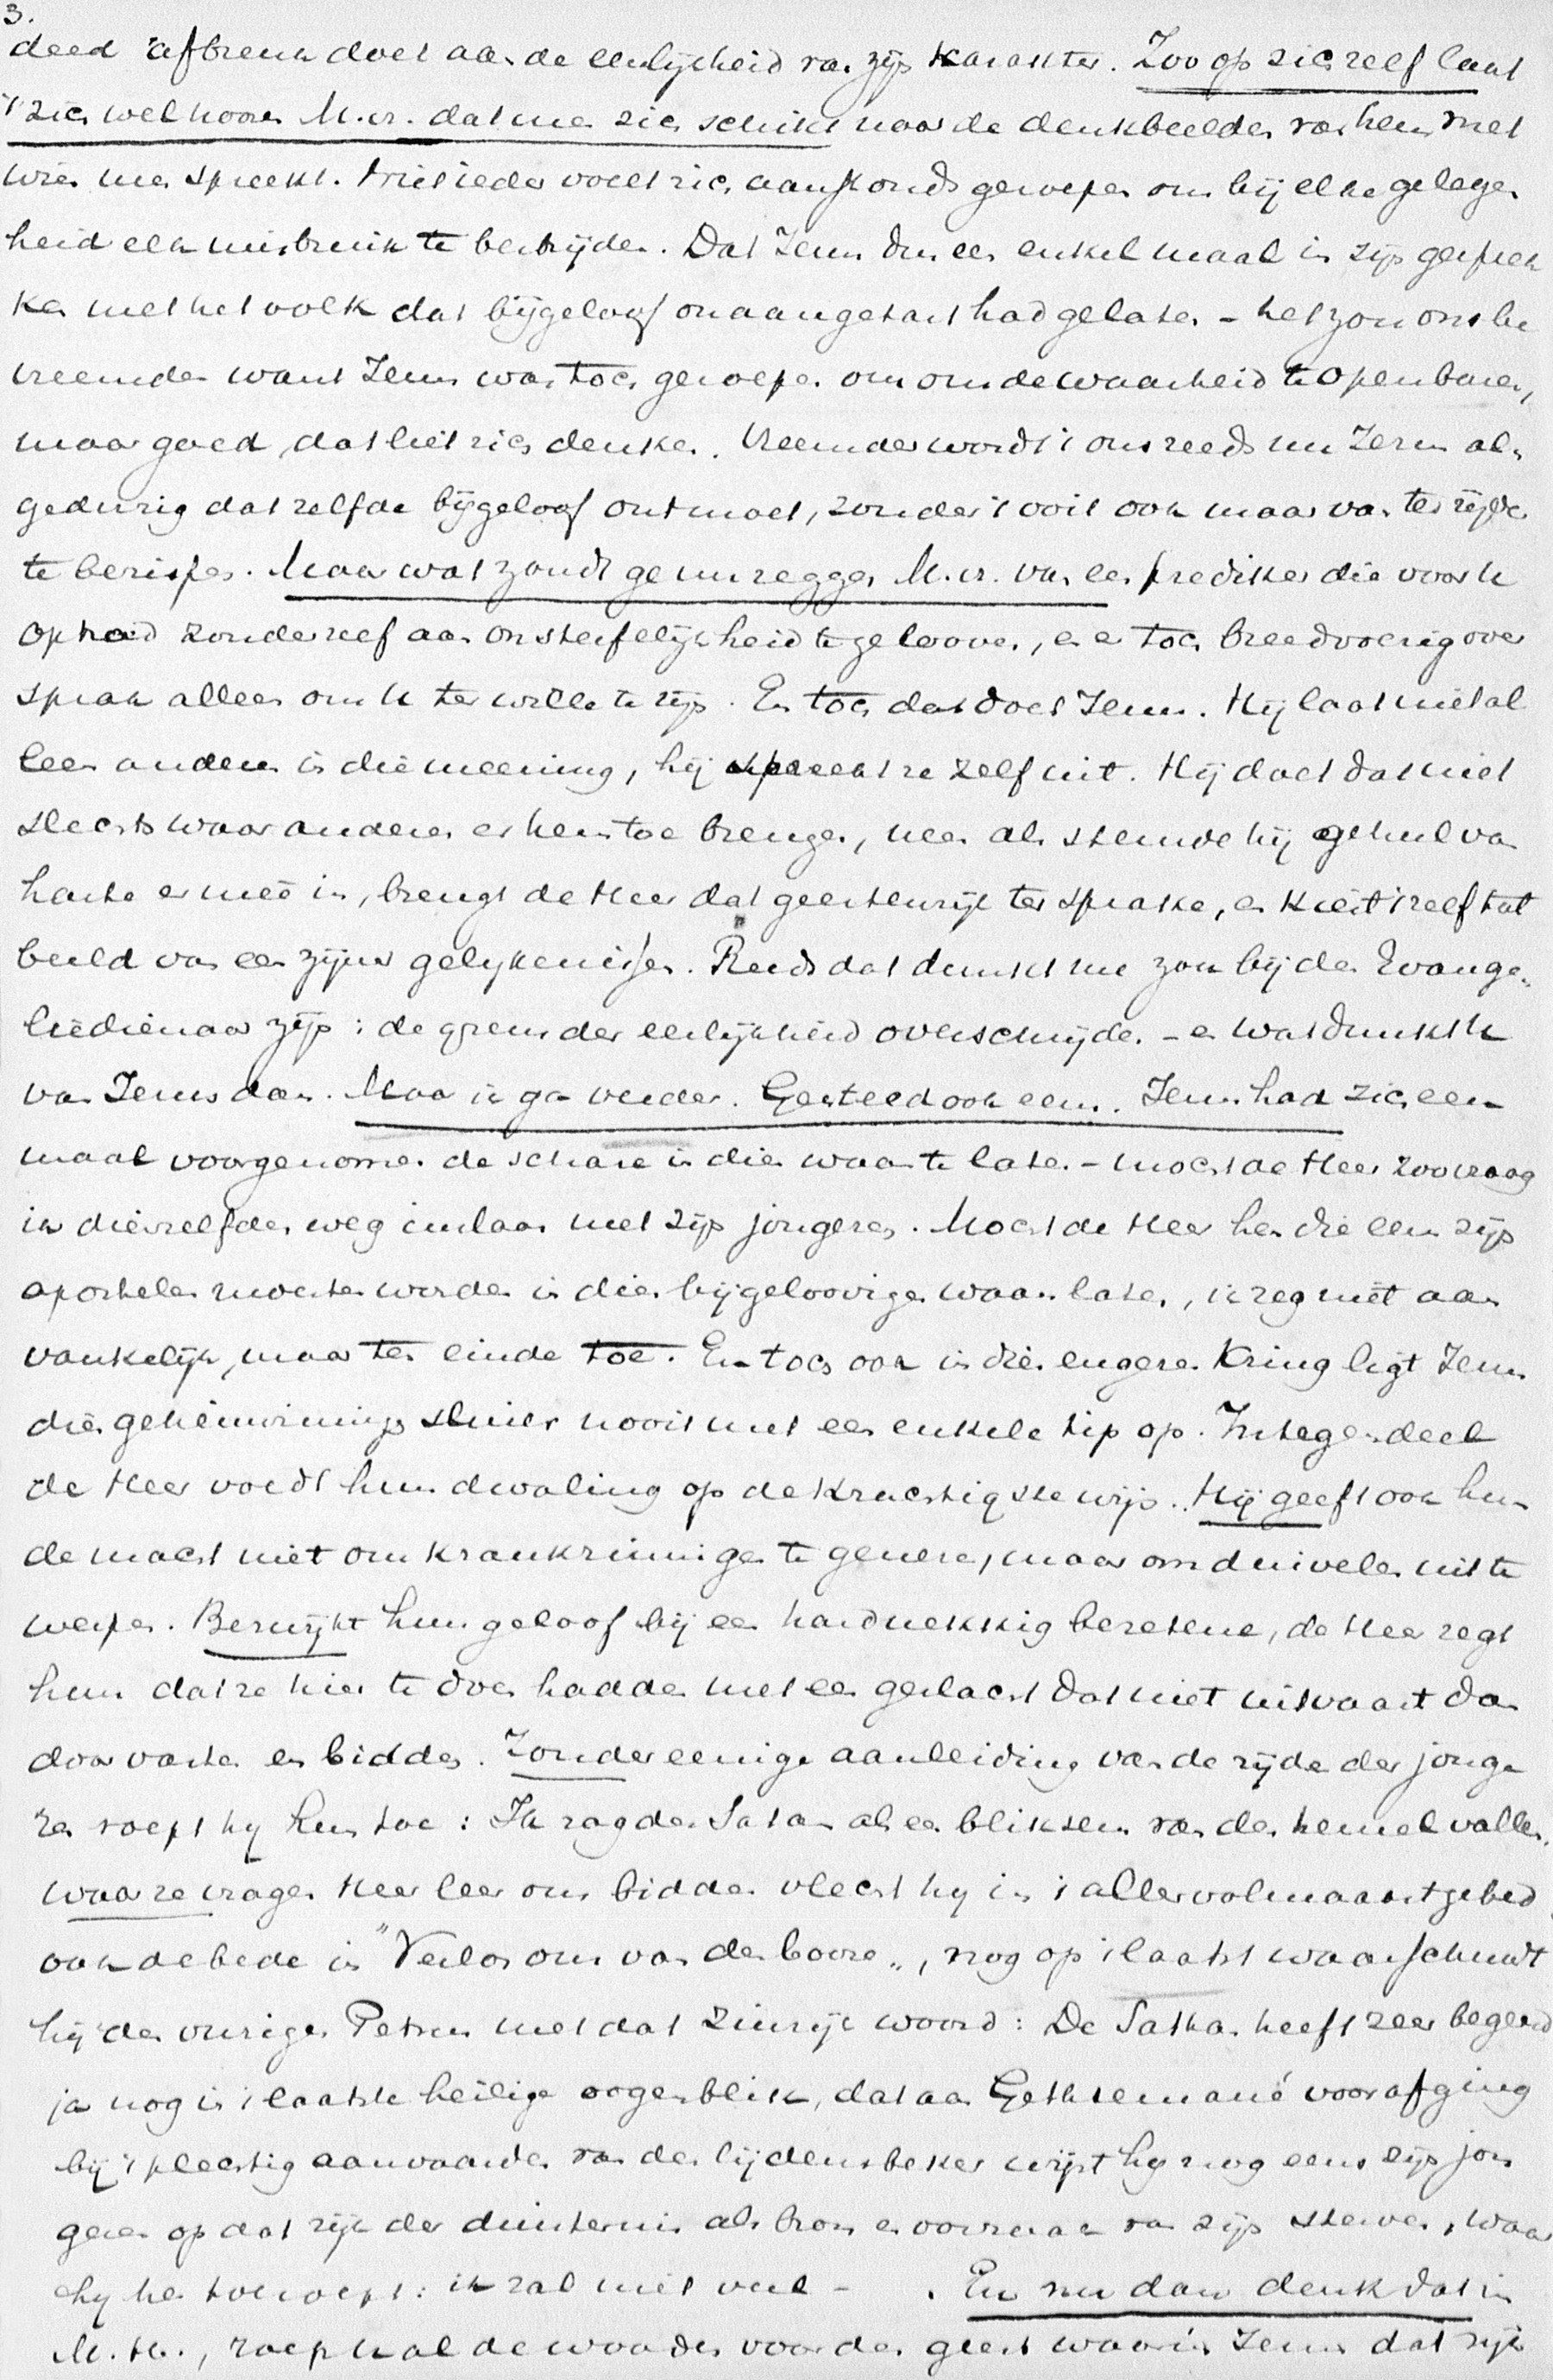 3.
deed afbreuk doet aan de eerlijkheid van zijn karakter. Zoo op zich zelf laat
't zich wel hooren M.vr. dat men zich schikt naar de denkbeelden van hem met
wien men spreekt. Niet ieder voelt zich aanstonds geroepen om bij elke gelegen
heid elk misbruik te bestrijden. Dat Jezus dus een enkel maal in zijn gesprek
ken met het volk dat bijgeloof onaangetast had gelaten - het zou ons be
vreemden want Jezus was toch geroepen om ons de waarheid te openbaren,
maar goed, dat liet zich denken. Vreemder wordt 't ons reeds nu Jezus al-
gedurig dat zelfde bijgeloof ontmoet, zonder 't ooit ook maar van ter zijde
te berispen. Maar wat zoudt ge nu zeggen M.vr. van een prediker die voor u
optrad zonder zelf aan onsterfelijkheid te gelooven, en er toch breedvoerig over
sprak alleen om u ter wille te zijn. En toch dat doet Jezus. Hij laat niet al
leen anderen in die meening, hij spreekt ze zelf uit. Hij doet dat niet
slechts waar anderen er hem toe brengen, neen als stemde hij geheel van
harte er meê in, brengt de Heer dat geestenrijk ter sprake, en kiest 't zelf tot
beeld van een zijner gelijkenissen. Reeds dat dunkt me zou bij den Evange-
liedienaar zijn: de grens der eerlijkheid overschrijden - en wat dunkt u
van Jezus dan. Maar ik ga verder. Gesteld ook eens. Jezus had zich een-
maal voorgenomen de schare in dien waan te laten - mocht de Heer zoo vraag
ik dienzelfden weg inslaan met zijn jongeren. Mocht de Heer hen die eens zijn
apostelen moesten worden in dien bijgeloovigen waan laten, ik zeg niet aan
vankelijk, maar ten einde toe. En toch ook in dien engeren Kring ligt Jezus
dien geheimzinnigen sluier nooit met een enkele tip op. Integendeel
de Heer voedt hun dwaling op de krachtigste wijs. Hij geeft ook hun
de macht niet om krankzinnigen te genezen, maar om duivelen uit te
werpen. Bezwijkt hun geloof bij een hardnekkig bezetene, de Heer zegt
hun dat ze hier te doen hadden met een geslacht dat niet uitvaart dan
door vasten en bidden. Zonder eenige aanleiding van de zijde der jonge
ren roept hij hun toe: Ik zag den Satan als een bliksem van den hemel vallen.
Waar ze vragen Heer leer ons bidden vlecht hij in 't allervolmaaktst gebed
ook de bede in "Verlos ons van den booze", nog op 't laatst waarschuwt
hij den vurigen Petrus met dat zinrijk woord: De Sathan heeft zeer begeerd
ja nog in 't laatste heilige oogenblik, dat aan Gethsemané voorafging
bij 't plechtig aanvaarden van den lijdensbeker wijst hij nog eens zijn jon
geren op dat rijk der duisternis als bron en oorzaak van zijn sterven, waar
hij hen toeroept: ik zal niet veel - . En nu dan denk dat in
M. H., roep u al de woorden voor den geest waarin Jezus dat rijk